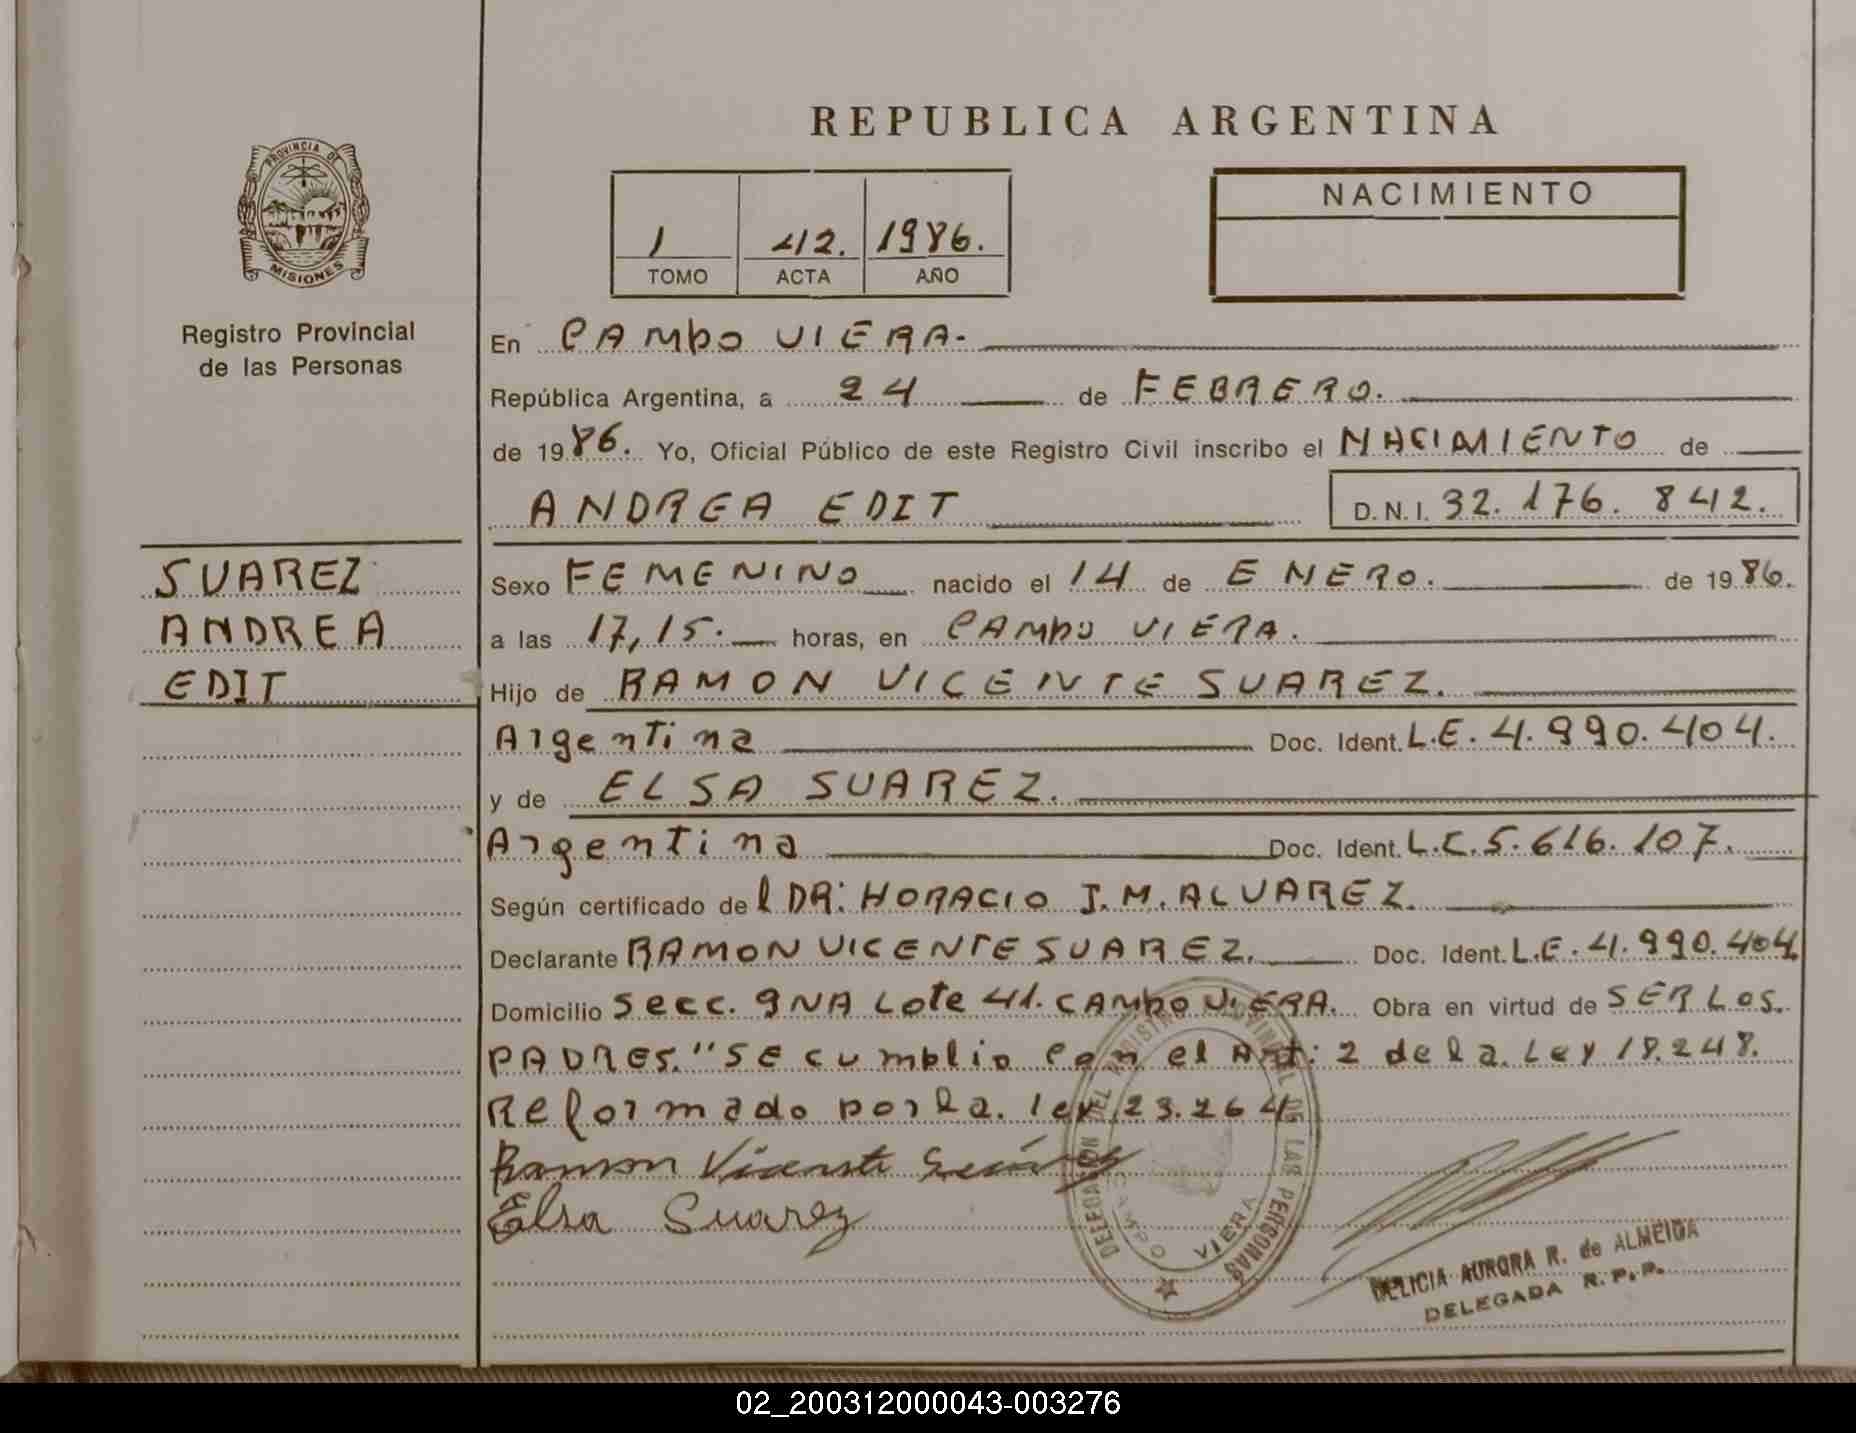 REPUBLICA ARGENTINA
PROVINCIA DE
MISIONES
Registro Provincial
de las Personas
1 42. 1986.
TOMO ACTA AÑO
NACIMIENTO
En CAMPO VIERA.
República Argentina, a 24 de FEBRERO.
de 1986. Yo, Oficial Público de este Registro Civil inscribo el NACIMIENTO de
ANDREA EDIT D.N.I. 32.176.842.
SUAREZ
ANDREA
EDIT
Sexo FEMENINO nacido el 14 de ENERO. de 1986.
a las 17,15. horas, en CAMPO VIERA.
Hijo de RAMON VICENTE SUAREZ.
Argentina Doc. Ident. L.E. 4.990.404.
y de ELSA SUAREZ.
Argentina Doc. Ident. L.C. 5.616.107.
Según certificado del DR: HORACIO J.M. ALVAREZ.
Declarante RAMON VICENTE SUAREZ. Doc. Ident. L.E. 4.990.404
Domicilio Secc. 9NA Lote 41. CAMPO VIERA. Obra en virtud de SER LOS.
PADRES. "SE cumplio con el Art: 2 de la. Ley 18.248.
Reformado por la. ley 23.264
Ramon Vicente Suárez
Elsa Suarez
DELEGACION DEL REGISTRO PROVINCIAL DE LAS PERSONAS
CAMPO VIERA
DELICIA AURORA R. de ALMEIDA
DELEGADA R.P.P.
02_200312000043-003276